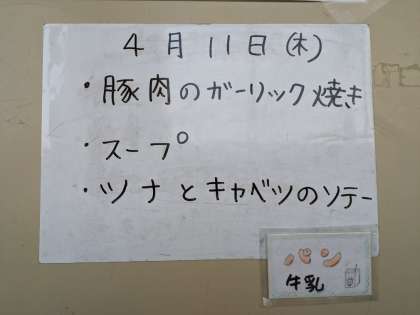 4月11日(木)
・豚肉のガーリック焼き
・スープ
・ツナとキャベツのソテー
パン
牛乳